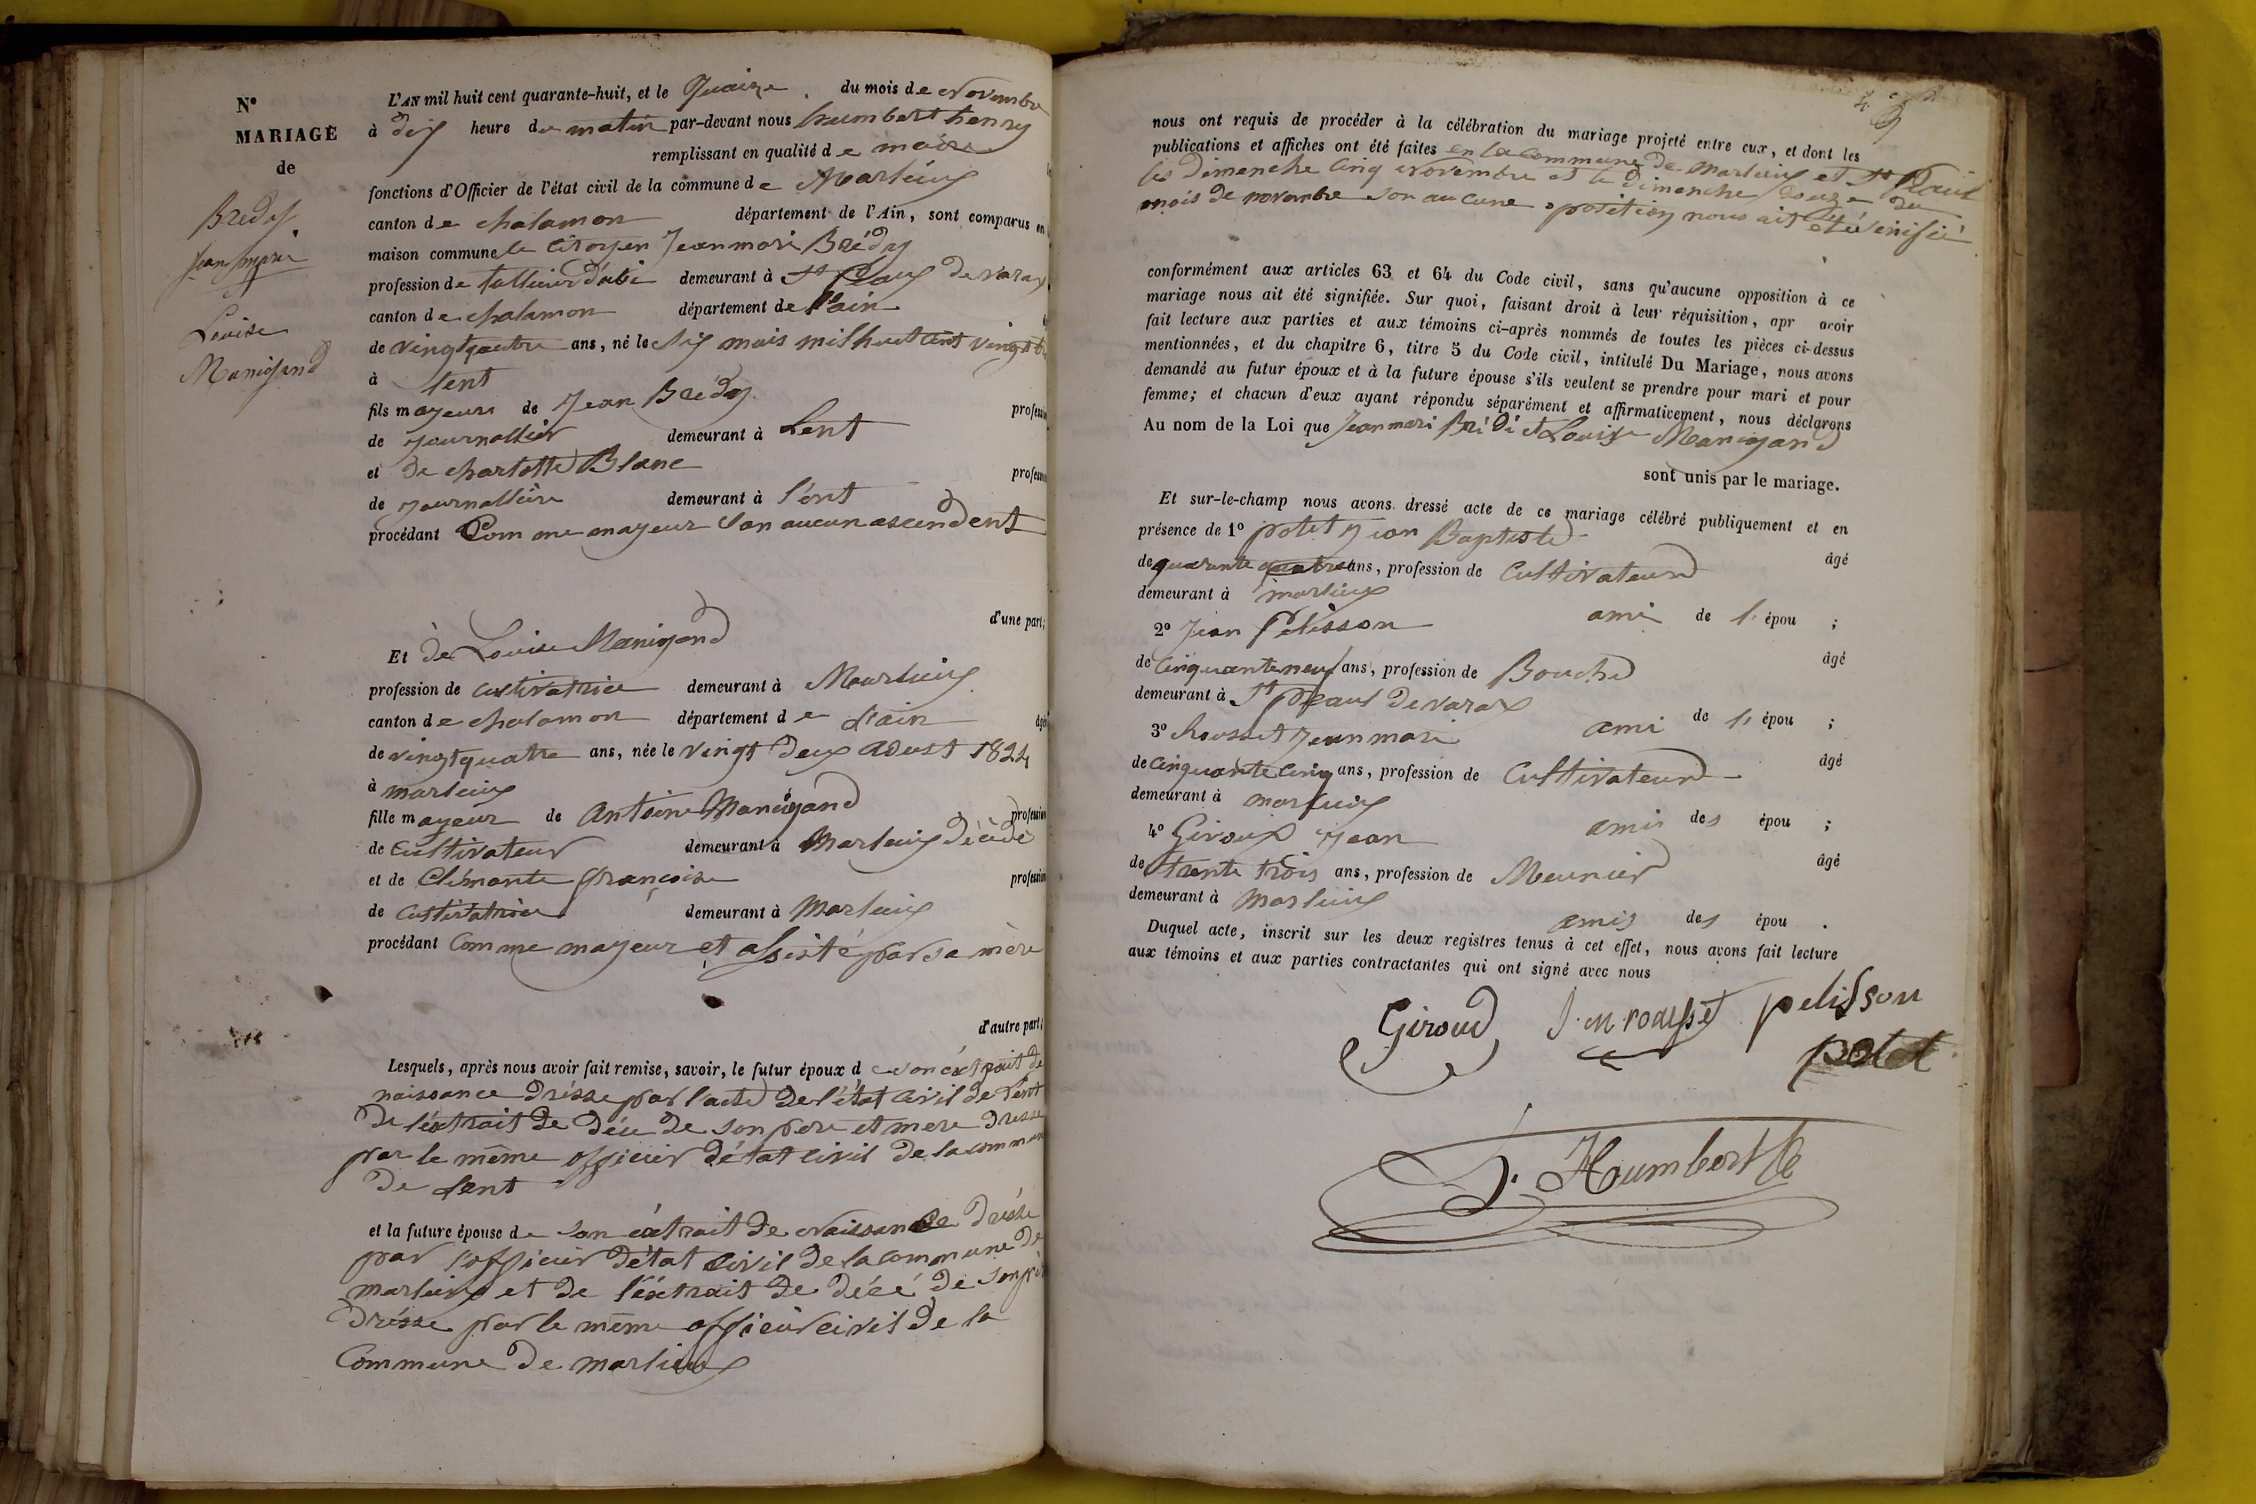 N°
MARIAGE
de
Bredy
jean marie
Louise
Manigand
L'AN mil huit cent quarante-huit, et le Quinze du mois de novembre
à dix heure du matin par-devant nous humbert henry
remplissant en qualité de maire
fonctions d'Officier de l'état civil de la commune de Marlieux
canton de chalamon département de l'Ain, sont comparus en
maison commune le citoyen Jean mari Brédy
profession de tallieur d'abi demeurant à St Paul de varax
canton de chalamon département de l'ain
de vingt quatre ans, né le dix mais mil huit cent vingt
à lent
fils mayeur de Jean Brédy professio
de journallier demeurant à Lent
et de charlotte Blanc professio
de journallière demeurant à lent
procédant Comme mayeur san aucun ascendent
d'une part;
Et de Louise Manigand
profession de cultivatrice demeurant à Marlieux
canton de chalamon département de l'ain âgée
de vingt quatre ans, née le vingt deux Aoust 1824
à marlieux
fille mayeur de Antoine Manigand profession
de cultivateur demeurant à Marlieux décédé
et de Clémente françoise profession
de cultivatrice demeurant à Marlieux
procédant Comme mayeur et assisté par sa mère
d'autre part;
Lesquels, après nous avoir fait remise, savoir, le futur époux de son éxtrait de
naissance drésse par l'acte de l'état civil de lent
de l'éxtrait de décé de son père et mere dresse
par le même officier d'état civil de la commune
de lent
et la future épouse de son éxtrait de naissance drésse
par l'officier d'état civil de la commune de
marlieux et de l'éxtrait de décé de son père
drésse par le même officier civil de la
Commune de marlieux
nous ont requis de procéder à la célébration du mariage projeté entre eux, et dont les
publications et affiches ont été faites en la commune de marlieux et St Paul
les dimenche cinq novembre et le dimenche douze du
mois de novembre san aucune opotition nous ait été
conformément aux articles 63 et 64 du Code civil, sans qu'aucune opposition à ce
mariage nous ait été signifiée. Sur quoi, faisant droit à leur réquisition, apr avoir
fait lecture aux parties et aux témoins ci-après nommés de toutes les pièces ci-dessus
mentionnées, et du chapitre 6, titre 5 du Code civil, intitulé Du Mariage, nous avons
demandé au futur époux et à la future épouse s'ils veulent se prendre pour mari et pour
femme; et chacun d'eux ayant répondu séparément et affirmativement, nous déclarons
Au nom de la Loi que Jean mari Brédi et Louise Manigand
sont unis par le mariage.
Et sur-le-champ nous avons dressé acte de ce mariage célébré publiquement et en
présence de 1° potet Jean Baptiste
âgé
de quarante quatre ans, profession de Cultivateur
demeurant à marlieux
ami de l' épou ;
2° Jean Pélisson
âgé
de cinquante neuf ans, profession de Bouché
demeurant à St Paul de varax
ami de l' épou ;
3° Rousset Jean mari
âgé
de cinquante cinq ans, profession de Cultivateur
demeurant à marlieux
amis des épou ;
4° Giroux Jean
âgé
de trente trois ans, profession de Meunier
demeurant à Marlieux
amis des épou .
Duquel acte, inscrit sur les deux registres tenus à cet effet, nous avons fait lecture
aux témoins et aux parties contractantes qui ont signé avec nous
Giroud J. M. rousset pelisson
potet
Humbert